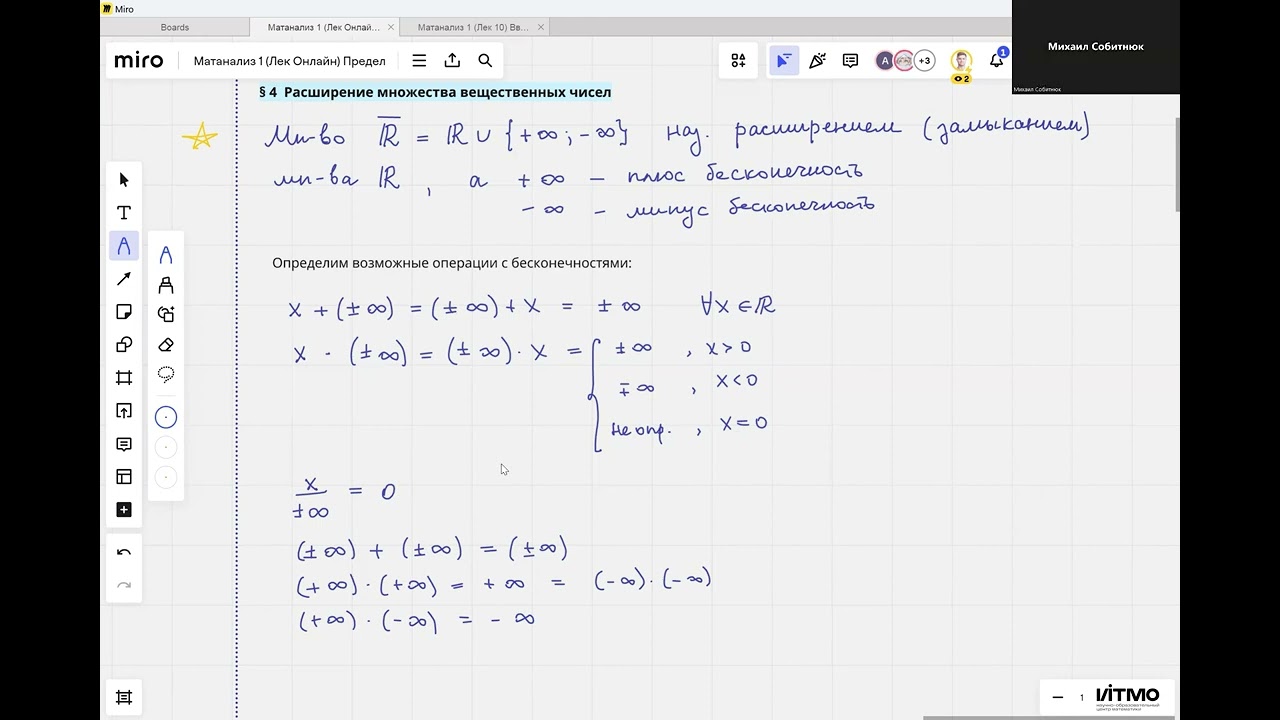 Miro
Boards
Матанализ 1 (Лек Онлай...
Матанализ 1 (Лек 10) Вв...
miro
Матанализ 1 (Лек Онлайн) Предел
A
+3
2
1
Михаил Собитнюк
Михаил Собитнюк
§ 4 Расширение множества вещественных чисел
Мн-во ℝ̅ = ℝ ∪ {+∞; -∞} наз. расширением (замыканием)
мн-ва ℝ, а +∞ — плюс бесконечность
-∞ - минус бесконечность
Определим возможные операции с бесконечностями:
x + (±∞) = (±∞) + x = ±∞ ∀x ∈ ℝ
x · (±∞) = (±∞) · x = { ±∞, x > 0
∓∞, x < 0
не опр., x = 0
x/±∞ = 0
(±∞) + (±∞) = (±∞)
(+∞) · (+∞) = +∞ = (-∞) · (-∞)
(+∞) · (-∞) = -∞
− 1
ИТМО
научно-образовательный
центр математики